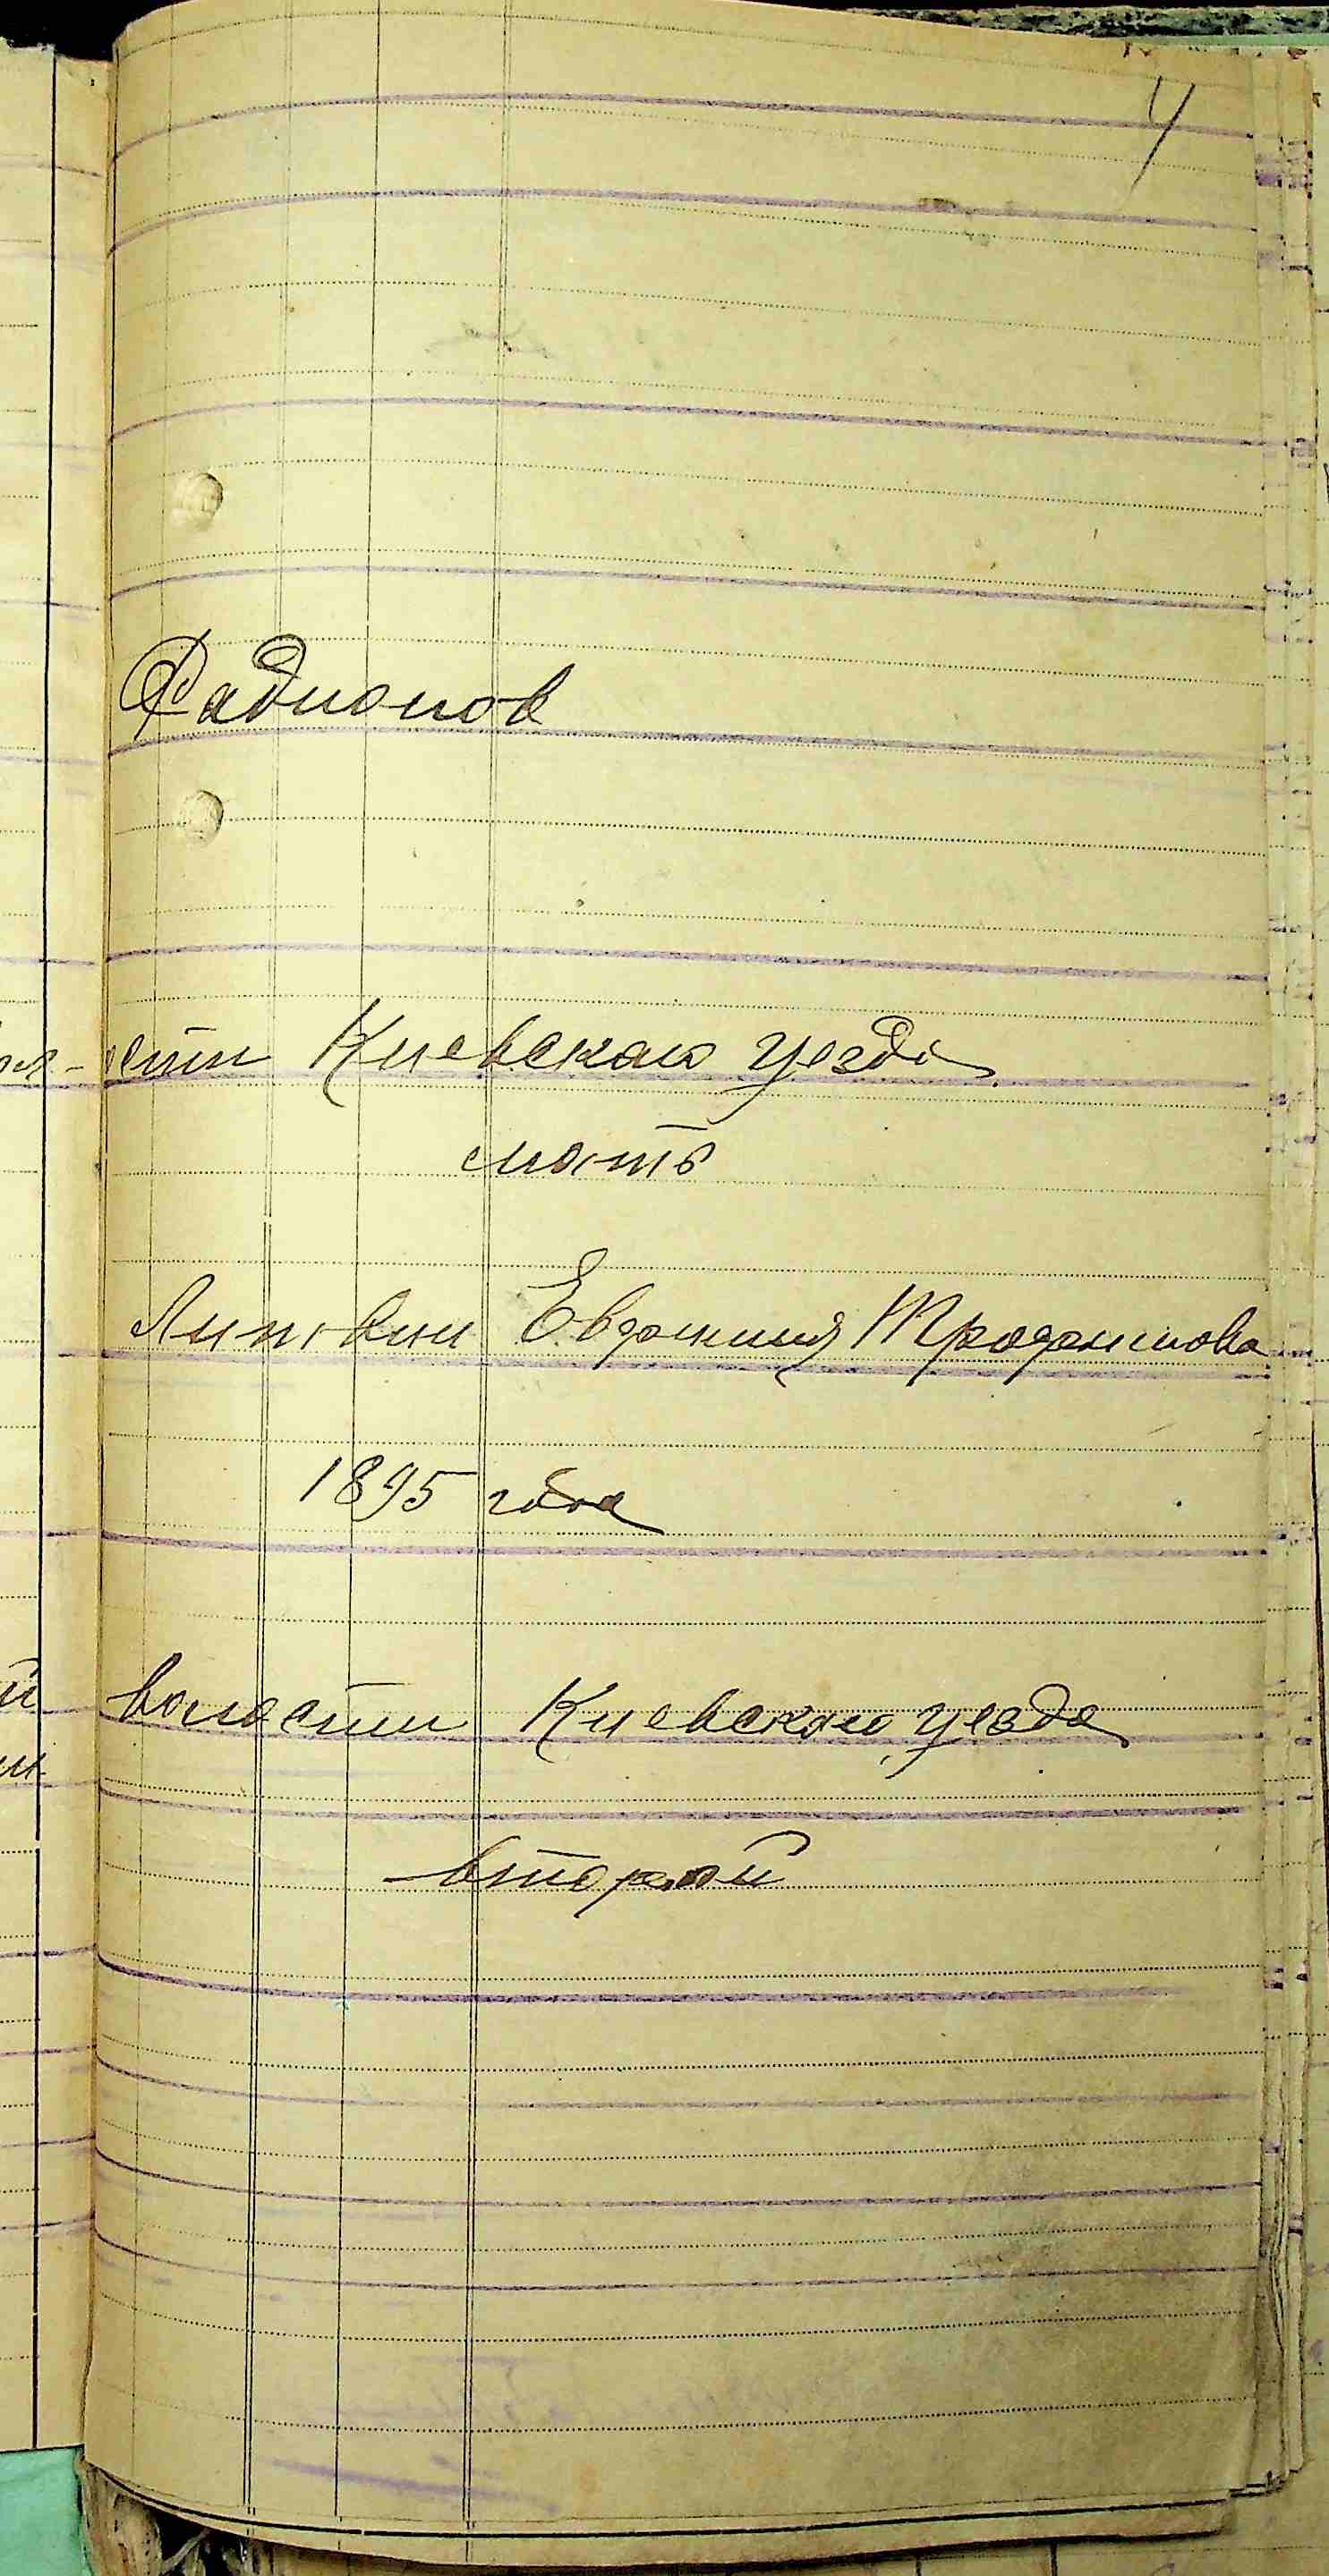 4
Радионов
сти Киевского уезда
мать
Евдокия Трофимова
1895 года
волости Киевского уезда
второй